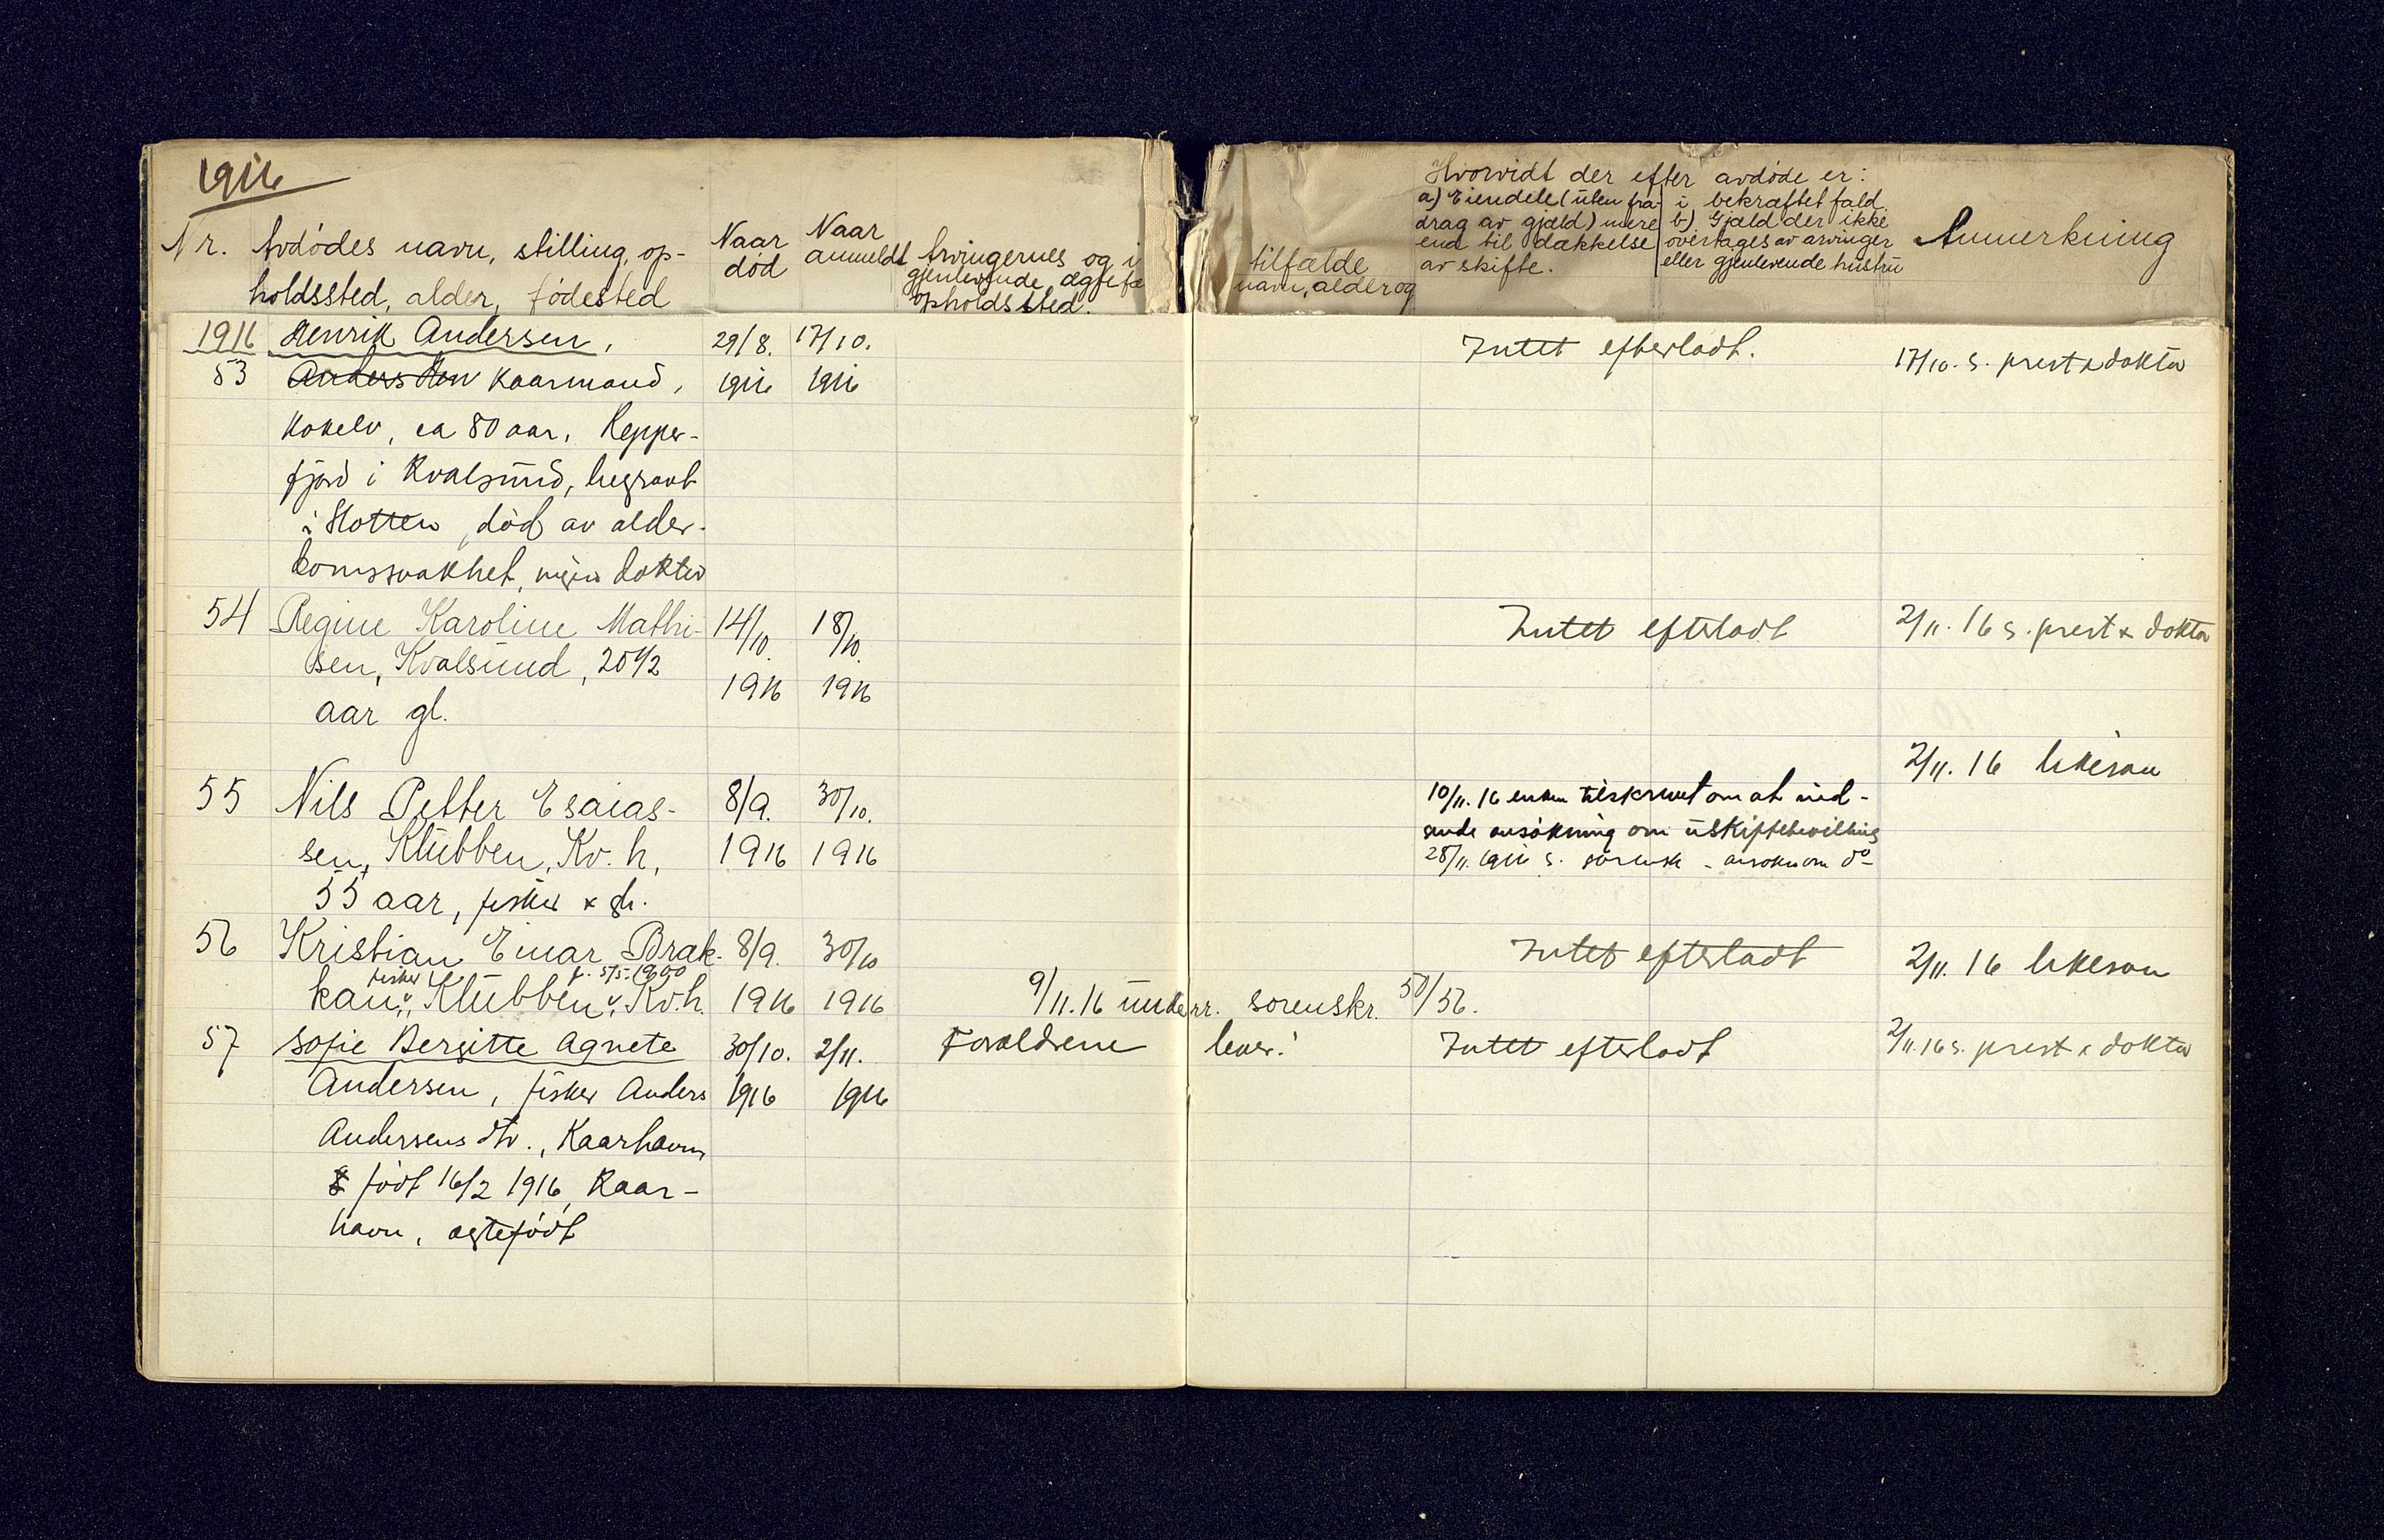 1916
Nr. Avdødes navn, stilling, op-
holdssted, alder, fødested
Naar
død
Naar
anmeldt
Arvingernes og i
gjenlevende ægtefæ
opholdssted.
tilfælde
navn, alder og
Hvorvidt der efter avdøde er:
a) Eiendele (uten fra-
drag av gjæld) mere
end til dækkelse
av skifte.
i bekræftet fald
b) Gjæld der ikke
overtages av arvinger
eller gjenlevende hustru
Anmerkning
1916 Henrik Andersen, 29/8. 17/10. Intet efterladt. 17/10. s. prest & doktor
53 Anders Kaarmand, 1916 1916
Kokelv, ca 80 aar, Repper-
fjord i Kvalsund, begravt
i Kotten, død av alder-
domssvakhet, ingen doktor
54 Regine Karoline Mathi- 14/10. 18/10. Intet efterladt 2/11. 16 s. prest & doktor
sen, Kvalsund, 20 1/2 1916 1916
aar gl.
2/11. 16 likesaa
55 Nils Petter Esaias- 8/9. 30/10. 10/11. 16 enken tilskrevet om at ind-
sen, Klubben, Kv. h, 1916 1916 sende ansøkning om uskiftebevilling
28/11. 1916 s. sorensk - ansøkn om do
55 aar, fisker & gb.
56 Kristian Einar Brak- 8/9. 30/10 Intet efterladt 2/11. 16 likesaa
fisker f. 5/5. 1900
kan, Klubben, Kv.h. 1916 1916 9/11. 16 underr. sorenskr. 50/56.
57 Sofie Bergitte Agnete 30/10. 2/11. Forældrene lever. Intet efterladt 2/11. 16 s. prest & doktor
Andersen, fisker Anders 1916 1916
Andersens dtr., Kaarhavn
født 16/2 1916, Kaar-
havn, egtefødt